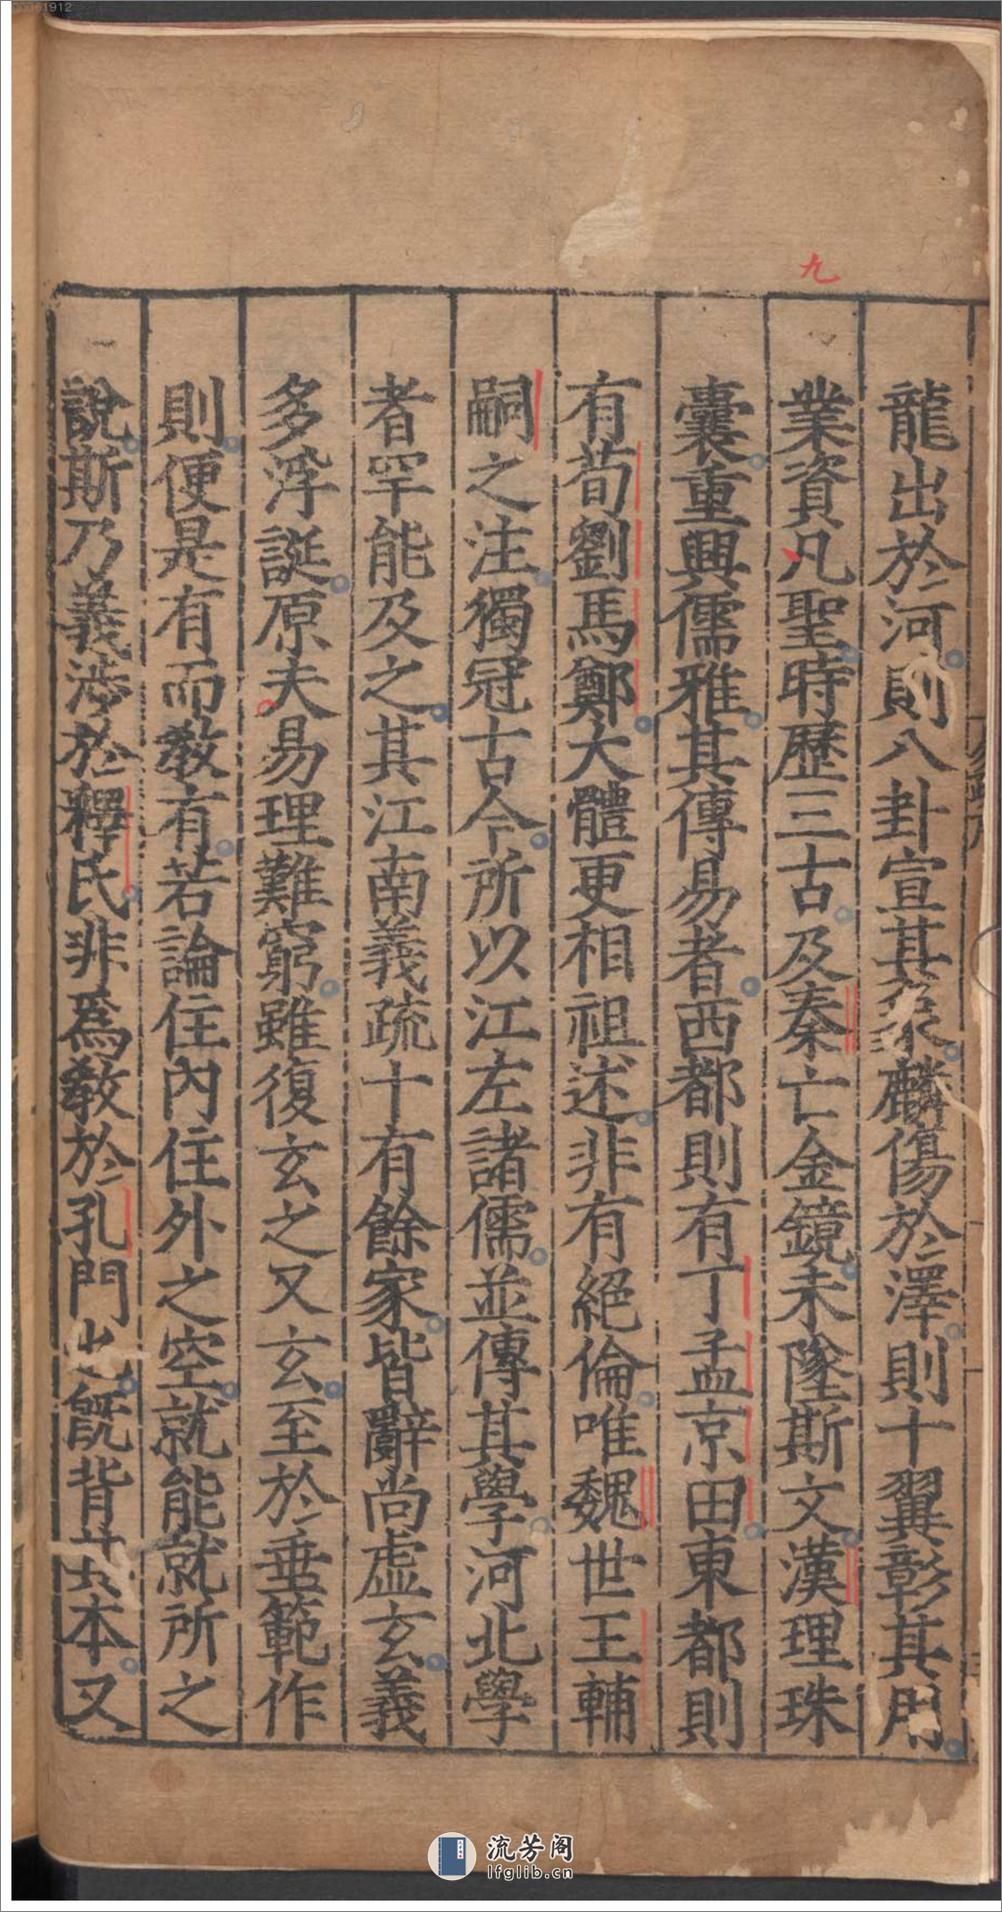 龍出於河則八卦宣其象麟傷於澤則十翼彰其用
業資凡聖時歷三古及秦亡金鏡未墜斯文漢理珠
囊重興儒雅其傳易者西都則有丁孟京田東都則
有荀劉馬鄭大體更相祖述非有絕倫唯魏世王輔
嗣之注獨冠古今所以江左諸儒並傳其學河北學
者罕能及之其江南義疏十有餘家皆辭尚虛玄義
多浮誕原夫易理難窮雖復玄之又玄至於垂範作
則便是有而教有若論住內住外之空就能就所之
說斯乃義涉於釋氏非為教於孔門也旣背其本又
九
流芳阁
lfglib.cn